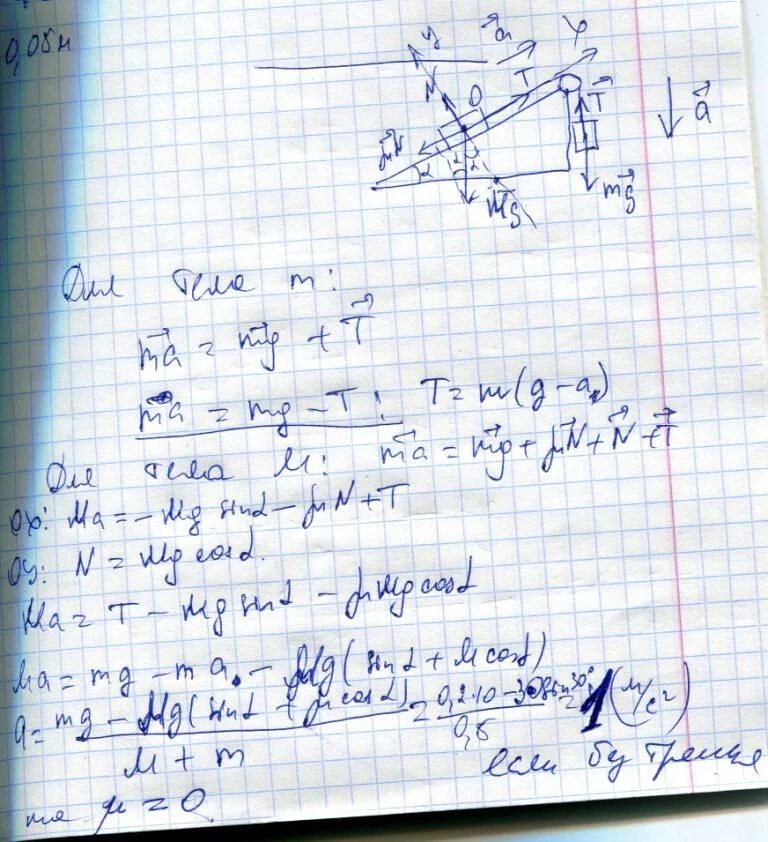 0,05м
y a x
N O T T a
μN α α α Mg mg
Для тела m:
ma = mg + T
ma = mg - T; T = m(g - a)
Для тела M: ma = mg + μN + N + T
Ox: Ma = -Mg sinα - μN + T
Oy: N = Mg cosα.
Ma = T - Mg sinα - μMg cosα
Ma = mg - ma - Mg(sinα + μ cosα)
a = mg - Mg(sinα + μ cosα) / M + m = 0,2·10 / 0,5 = 1 (м/с²)
если бу трения
то μ = 0